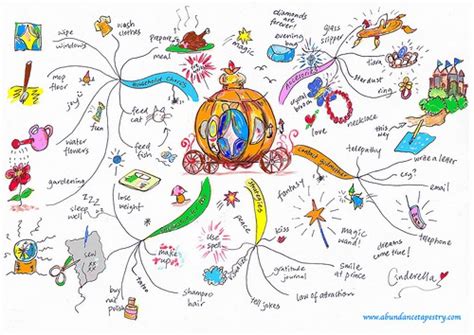 wipe windows
wash clothes
prepare meal
magic
diamonds are forever!
evening bag
glass slipper
tiara
mop floor
joy
fun
Household Chores
feed cat
Accessories
stardust
ring
crystal brooch
necklace
love
this way
water flowers
feed fish
Contact Godmother
telepathy
write a letter
cry?
email
gardening
zzz
sleep well
lose weight
fantasy
kiss
magic wand!
telephone
smile
dreams come true!
sew
xx
xx
use spell
gratitude journal
Cinderella
tattoo
buy nail polish
shampoo hair
tell jokes
law of attraction
www.abundancetapestry.com